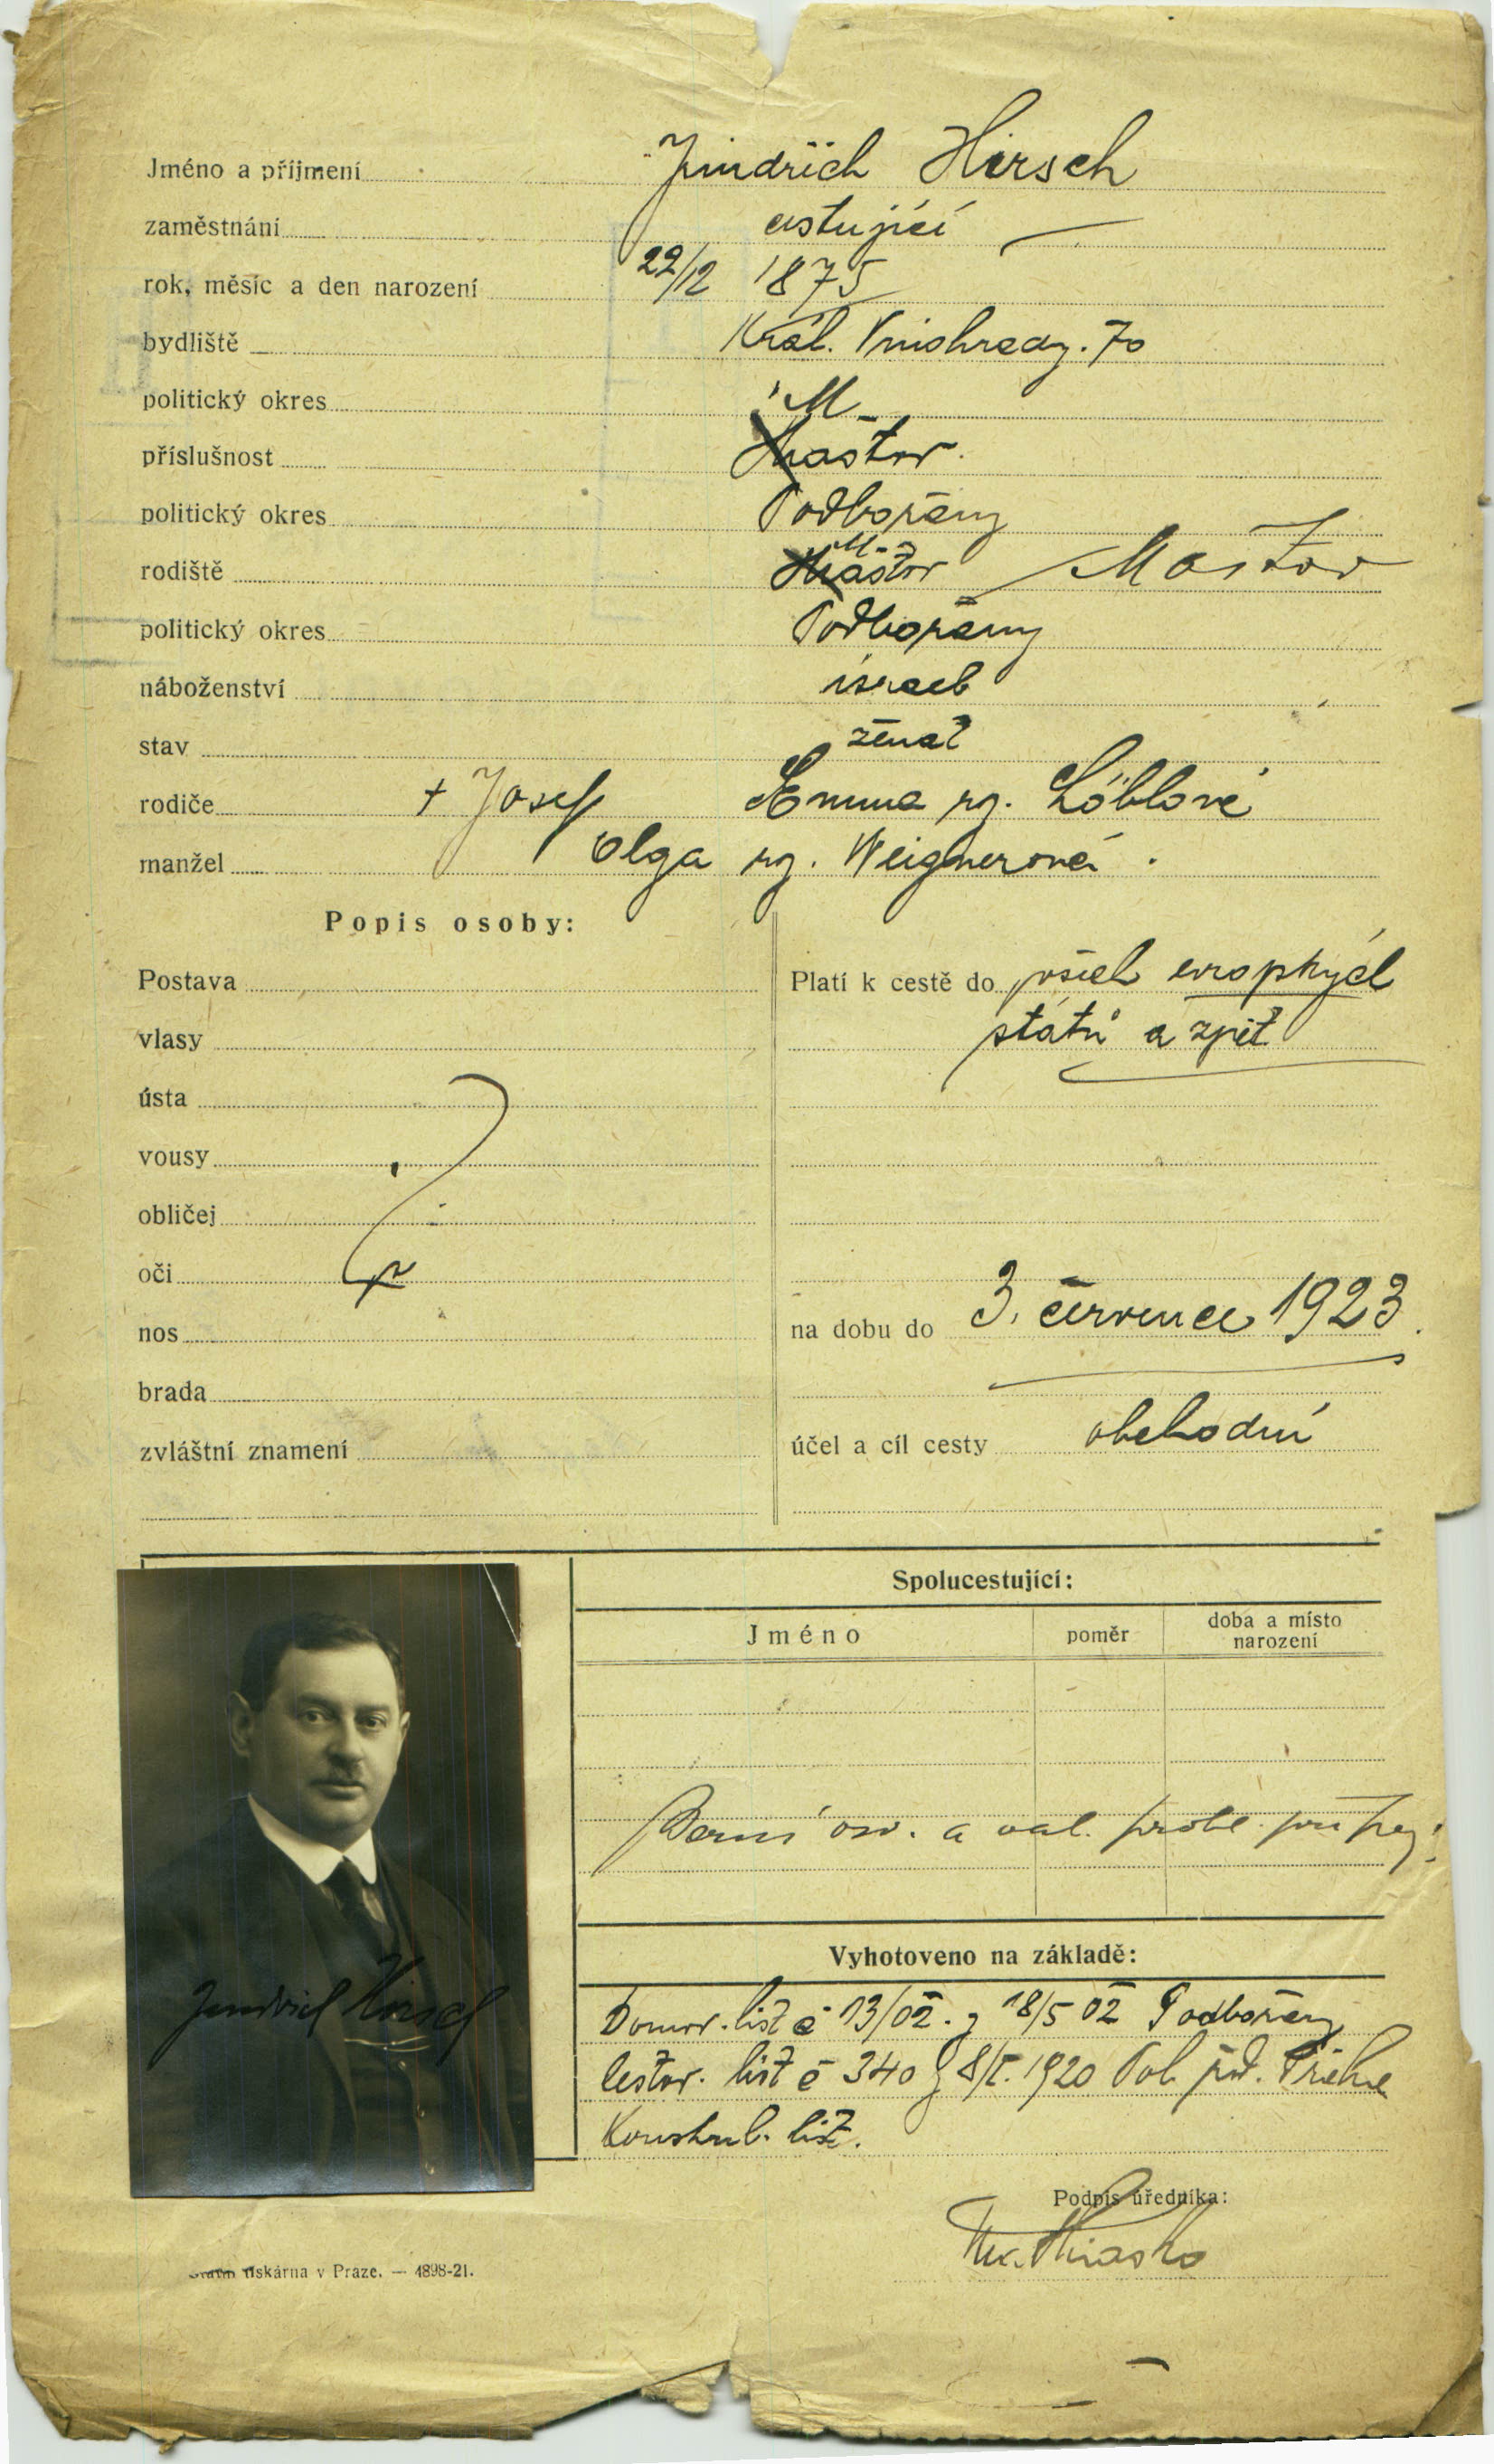 Jméno a příjmení Jindřich Hirsch
zaměstnání cestující
rok, měsíc a den narození 22/12 1875
bydliště Král. Vinohrady. 70
politický okres M
příslušnost Maštov.
politický okres Podbořany
rodiště Maštov Maštov
politický okres Podbořany
náboženství israel
stav ženat
rodiče + Josef Emma rz. Löblová
manžel Olga rz. Weignerová.
Popis osoby:
Postava
vlasy
ústa
vousy
obličej
oči
nos
brada
zvláštní znamení
Platí k cestě do všech evropských
států a zpět
na dobu do 3. července 1923.
účel a cíl cesty obchodní
Spolucestující:
Jméno poměr doba a místo
narození
Berní osv. a val. prohl.
Vyhotoveno na základě:
Domov. list č 13/02. z 18/5 02 Podbořany
Cestov. list č 340 z 8/I. 1920 Pol. řed. Praha
Konskrpč. list.
Jindřich Hirsch
Podpis úředníka:
tiskárna v Praze. — 4898-21.